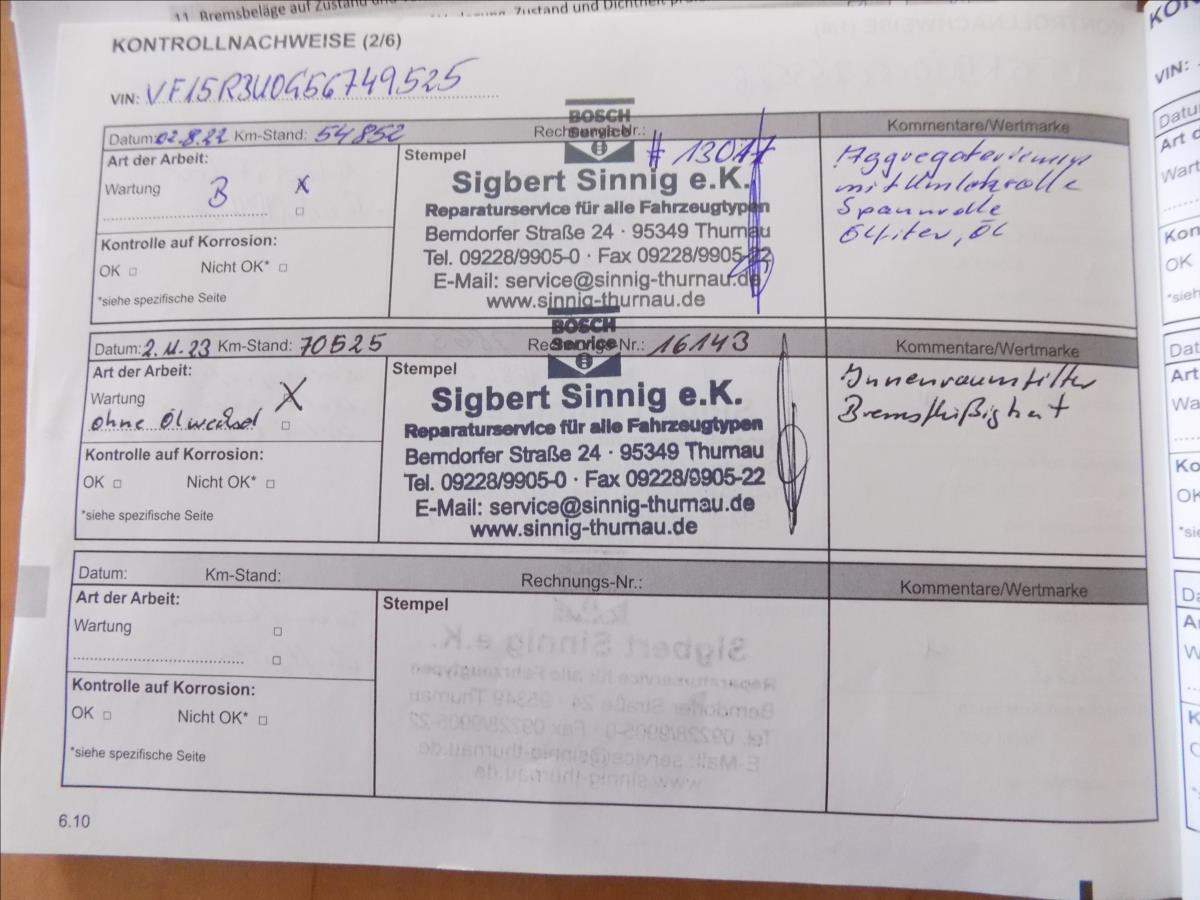 11. Bremsbeläge auf Zustand und
Zustand und Dichtheit
KONTROLLNACHWEISE (2/6)
VIN: VF15R3U0G56749525
Datum: 02.8.22 Km-Stand: 54852 Rechnungs-Nr.: # 13017 Kommentare/Wertmarke
BOSCH
Service
Art der Arbeit:
Wartung B x
Stempel
Sigbert Sinnig e.K.
Reparaturservice für alle Fahrzeugtypen
Berndorfer Straße 24 · 95349 Thurnau
Tel. 09228/9905-0 · Fax 09228/9905-22
E-Mail: service@sinnig-thurnau.de
www.sinnig-thurnau.de
Aggregateriemen
mit Umlenkrolle
Spannrolle
Ölfilter, Öl
Kontrolle auf Korrosion:
OK Nicht OK*
*siehe spezifische Seite
Datum: 2.11.23 Km-Stand: 70525 Rechnungs-Nr.: 16143 Kommentare/Wertmarke
BOSCH
Service
Art der Arbeit:
Wartung X
ohne Ölwechsel
Stempel
Sigbert Sinnig e.K.
Reparaturservice für alle Fahrzeugtypen
Berndorfer Straße 24 · 95349 Thurnau
Tel. 09228/9905-0 · Fax 09228/9905-22
E-Mail: service@sinnig-thurnau.de
www.sinnig-thurnau.de
Innenraumfilter
Bremsflüßigkeit
Kontrolle auf Korrosion:
OK Nicht OK*
*siehe spezifische Seite
Datum: Km-Stand: Rechnungs-Nr.: Kommentare/Wertmarke
Art der Arbeit:
Wartung
Stempel
Kontrolle auf Korrosion:
OK Nicht OK*
*siehe spezifische Seite
6.10
VIN: